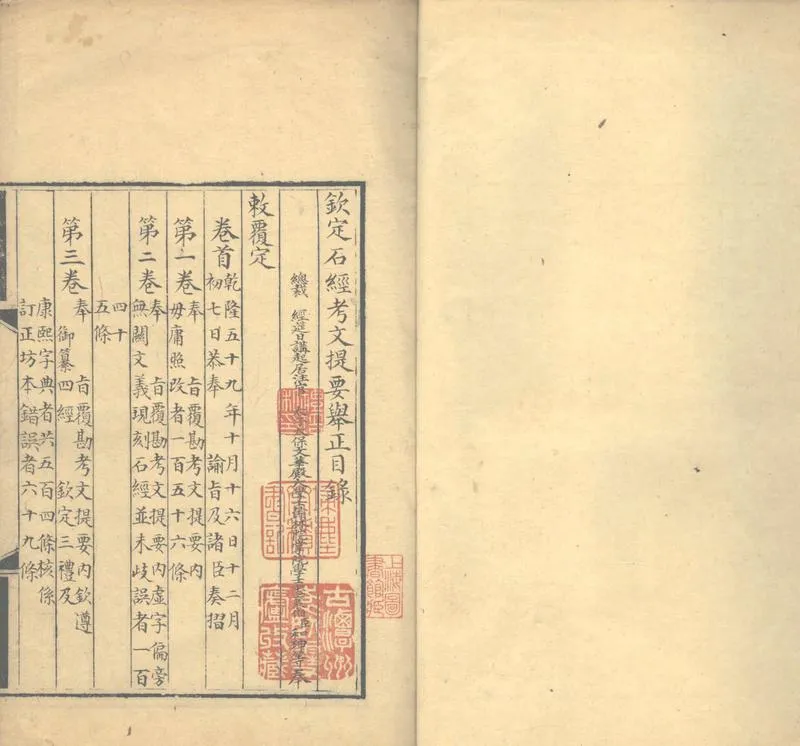 欽定石經考文提要舉正目錄
總裁 經筵日講起居注官 保文華殿大學士 和珅等奉
敕覆定
卷首 乾隆五十九年十月十六日十二月
初七日恭奉 諭旨及諸臣奏摺
第一卷 奉 旨覆勘考文提要內
毋庸照改者一百五十六條
第二卷 奉 旨覆勘考文提要內虛字偏旁
無關文義現刻石經並未歧誤者一百
四十
五條
第三卷 奉 旨覆勘考文提要內欽遵
御纂四經 欽定三禮及
康熙字典者共五百四條核係
訂正坊本錯誤者六十九條
上海圖
書館藏